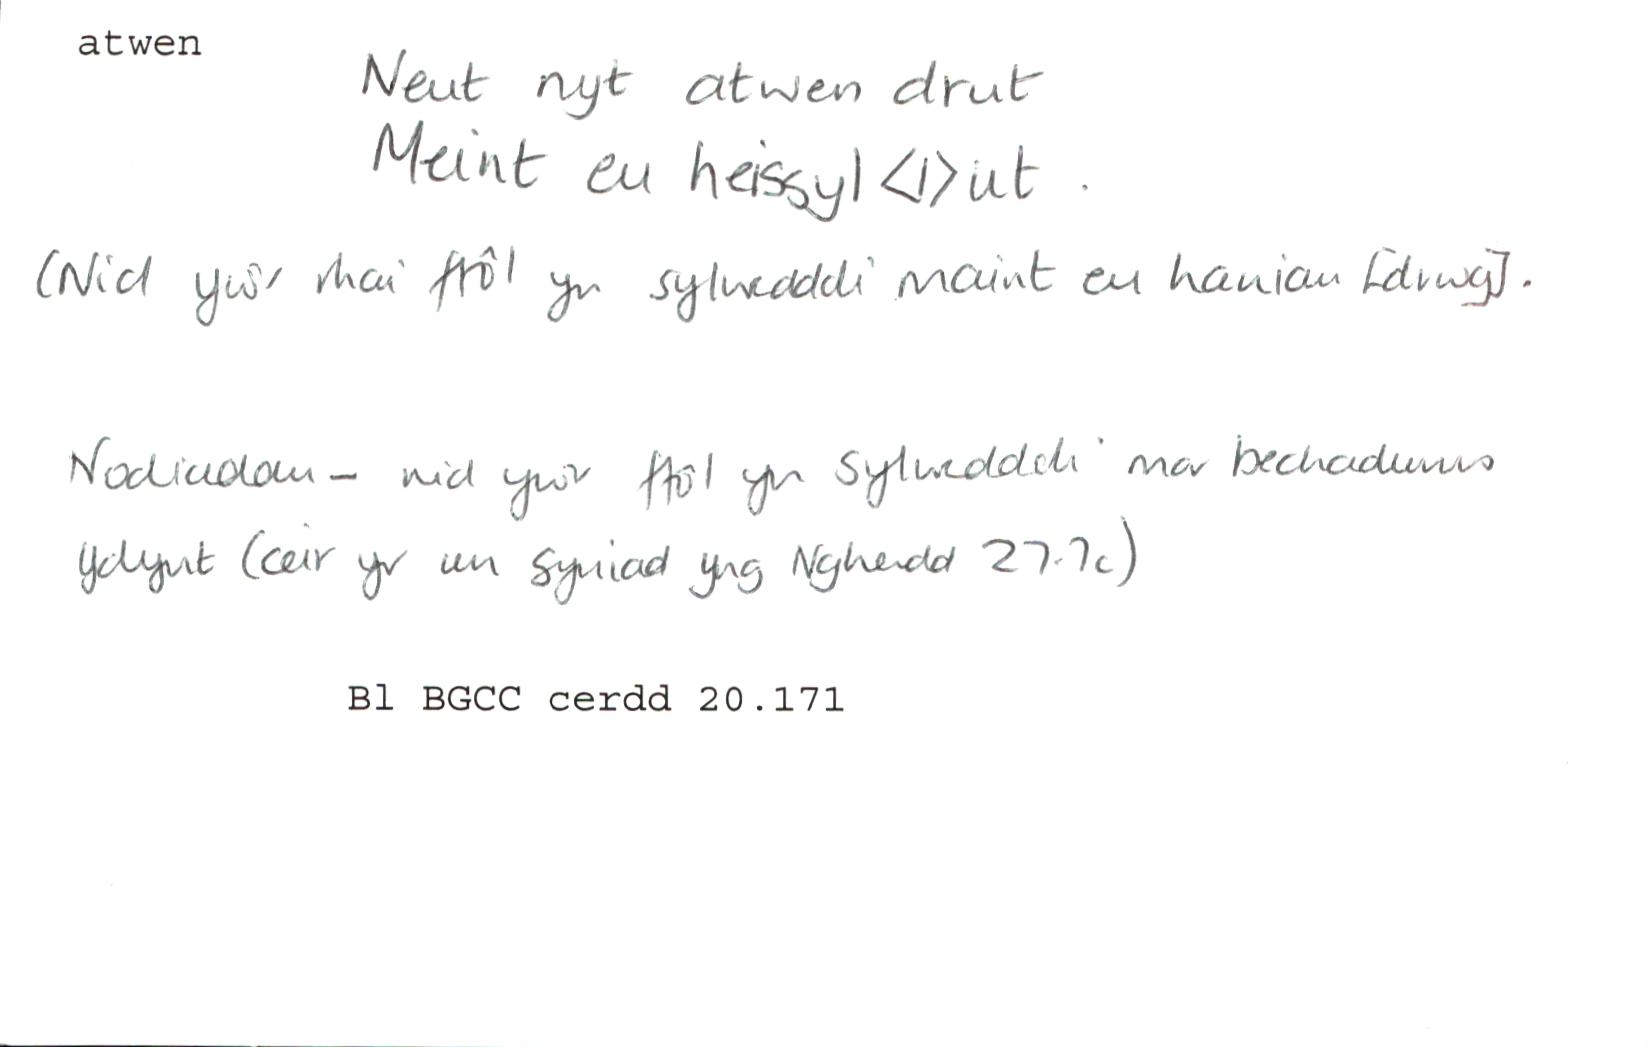 atwen
Neut nyt atwen drut
Meint eu heissyl<l>ut.
(Nid yw'r rhai ffôl yn sylweddoli maint eu hanian [drwg].
Nodiadau – nid yw'r ffôl yn sylweddoli mor bechadurus
ydynt (ceir yr un syniad yng Ngherdd 27.7c)
Bl BGCC cerdd 20.171